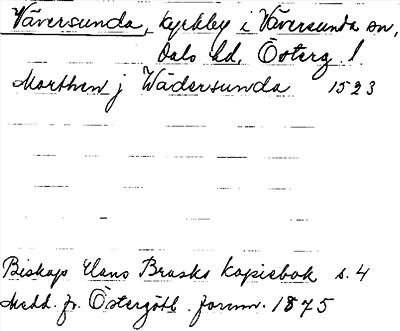 Väversunda, kyrkby i Väversunda sn,
Dals hd, Österg l.
Marthen j Wädersunda 1523
Biskop Hans Brasks kopiebok s. 4
Medd. fr. Östergötl. fornm. 1875